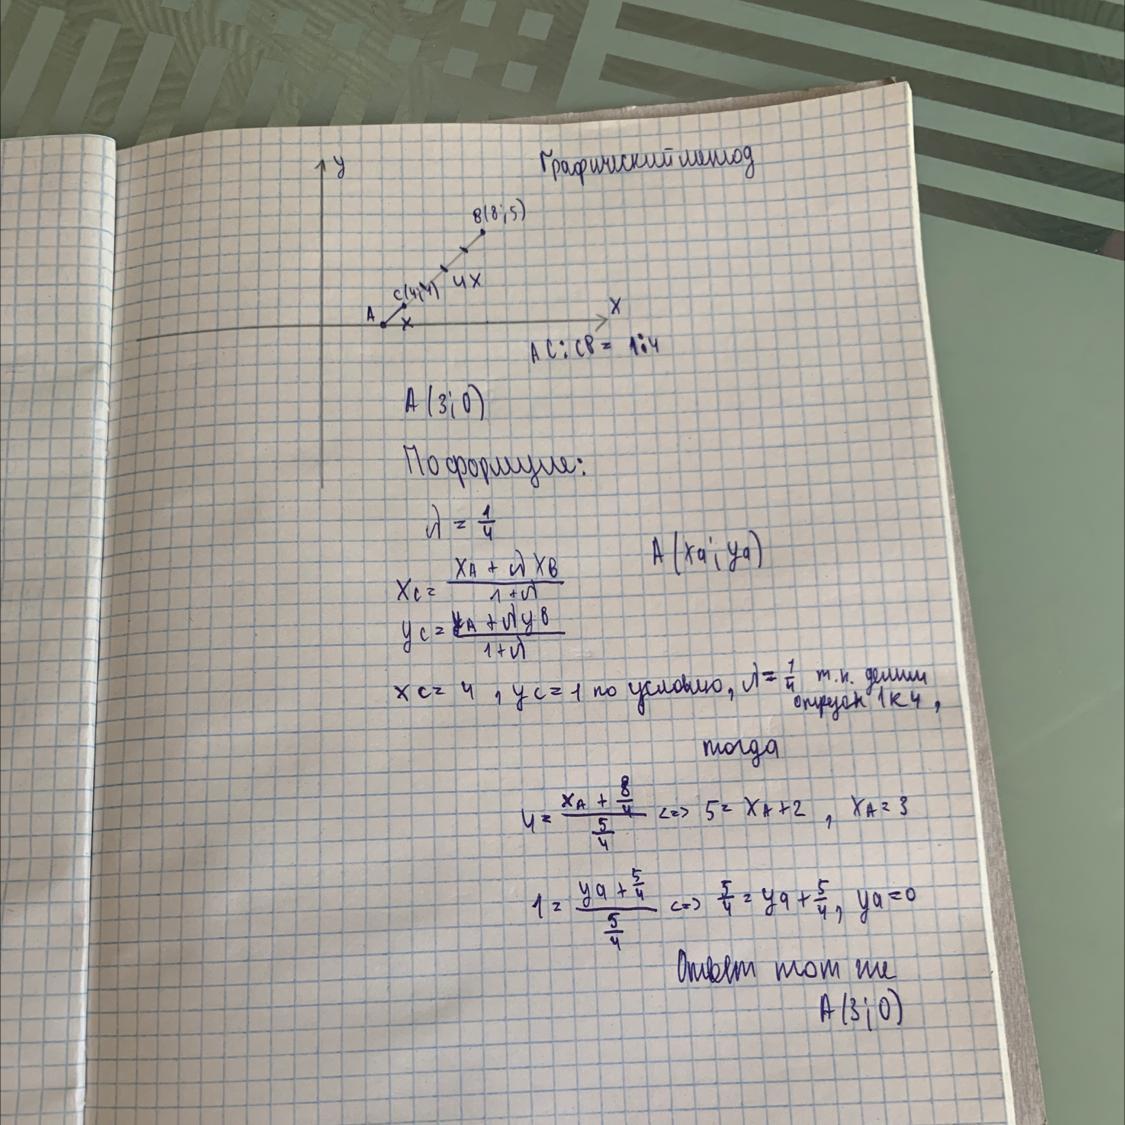 y
Графический метод
B(8;5)
C(4;1)
4x
A
x
X
AC:CB = 1:4
A(3;0)
По формуле:
λ = 1/4
A(xa; ya)
xc = (xA + λ xB)/(1+λ)
yc = (yA + λ yB)/(1+λ)
xc = 4, yc = 1 по условию, λ = 1/4 т.к. делим
отрезок 1 к 4,
тогда
4 = (xA + 8/4)/(5/4) <=> 5 = xA + 2, xA = 3
1 = (ya + 5/4)/(5/4) <=> 5/4 = ya + 5/4, ya = 0
Ответ тот же
A(3;0)